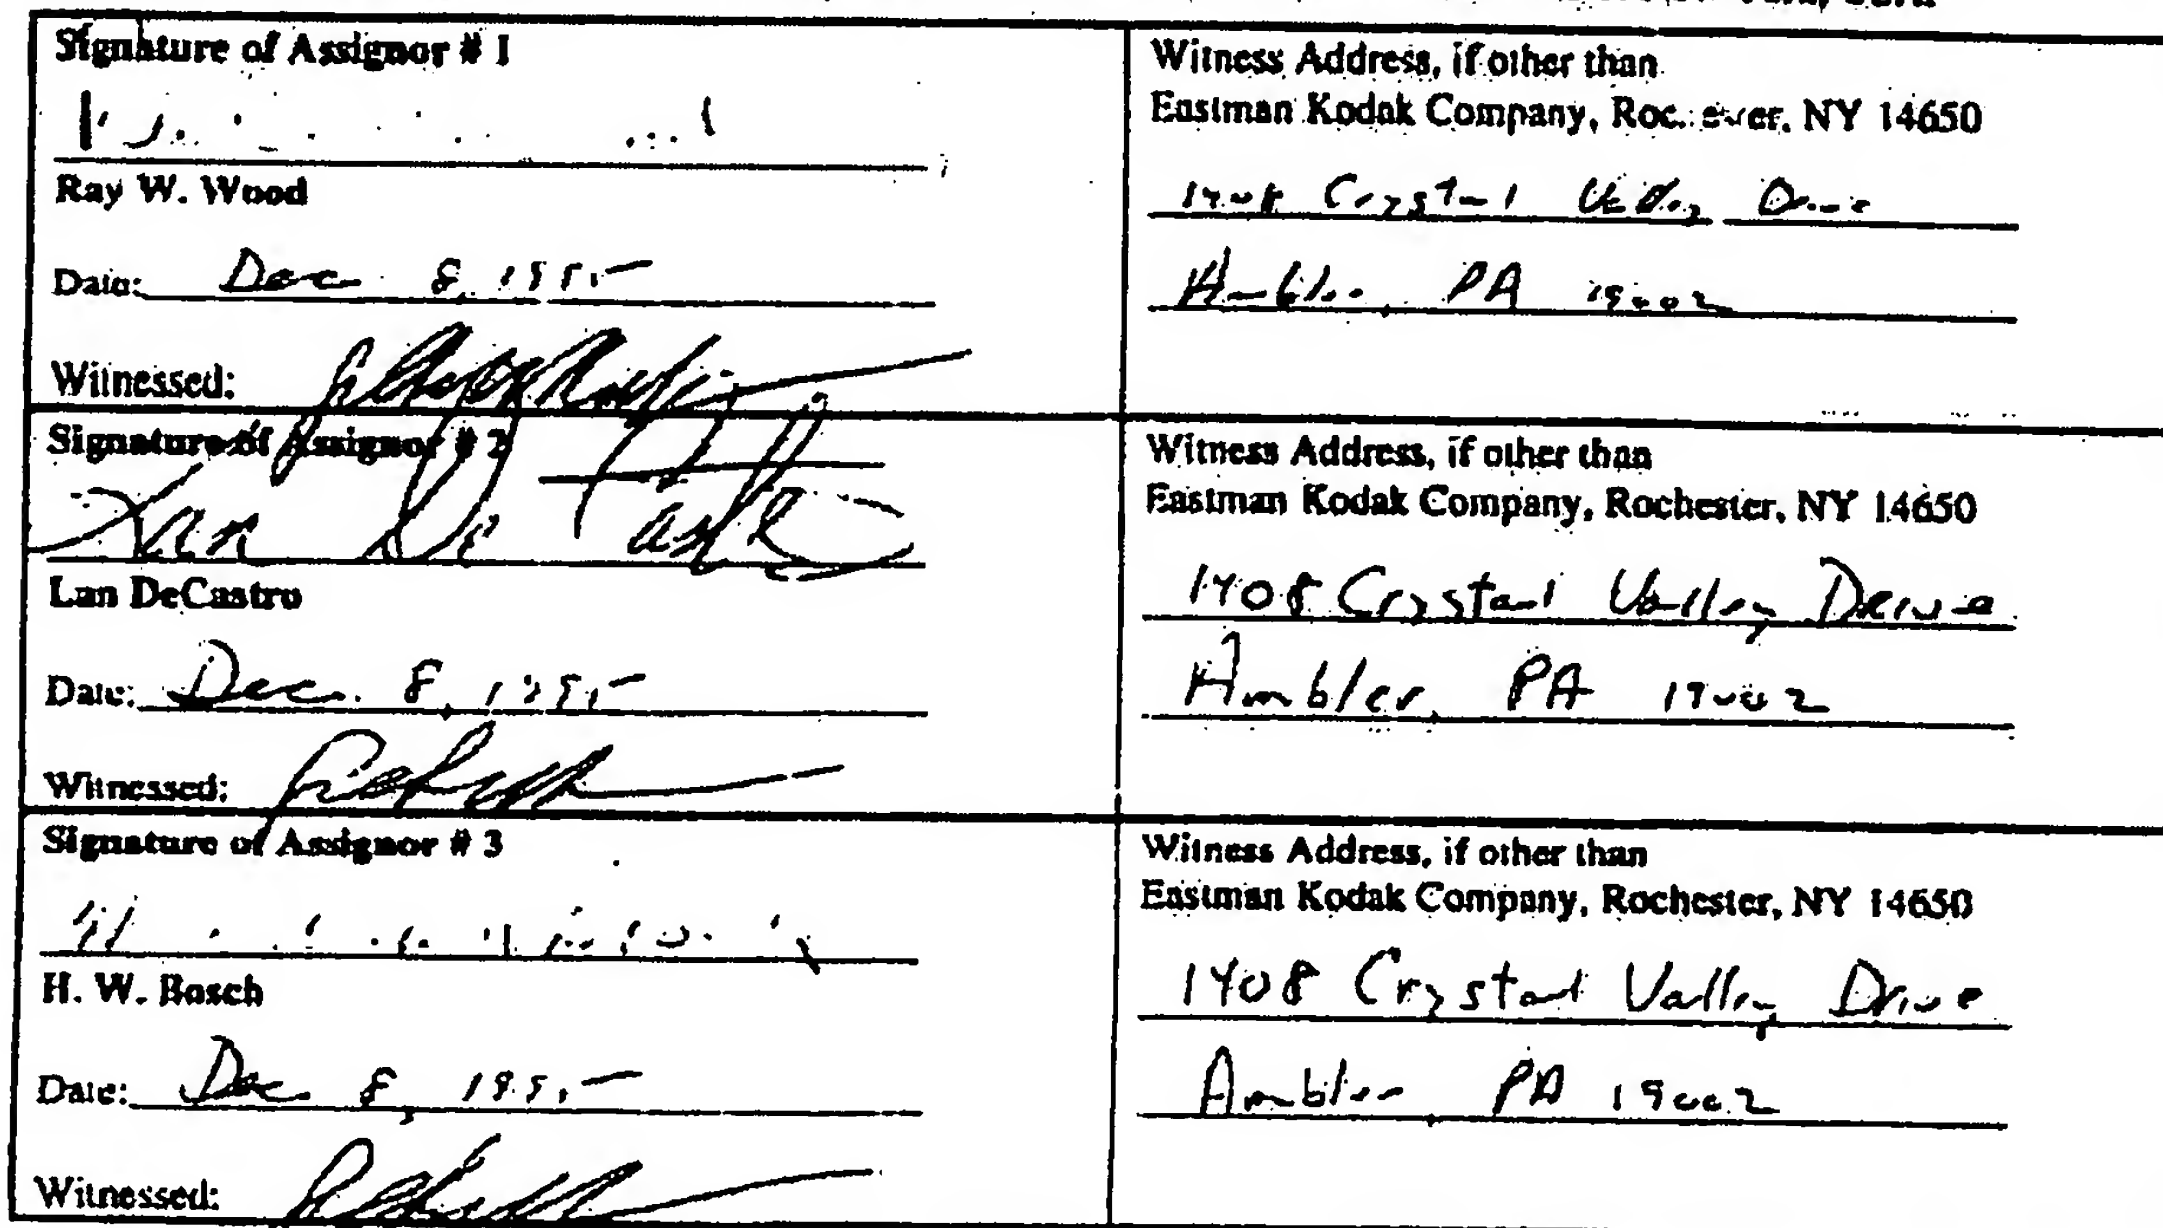 Signature of Assignor # 1
Ray W. Wood
Date: Dec 8,
Witnessed:
Witness Address, if other than
Eastman Kodak Company, NY 14650
1408 Crystal Valley Drive
Ambler, PA 19002
Signature of Assignor # 2
Lan De Castro
Lan DeCastro
Date: Dec. 8,
Witnessed:
Witness Address, if other than
Eastman Kodak Company, Rochester, NY 14650
1408 Crystal Valley Drive
Ambler, PA 19002
Signature of Assignor # 3
H. W. Bosch
Date: Dec 8,
Witnessed:
Witness Address, if other than
Eastman Kodak Company, Rochester, NY 14650
1408 Crystal Valley Drive
Ambler, PA 19002